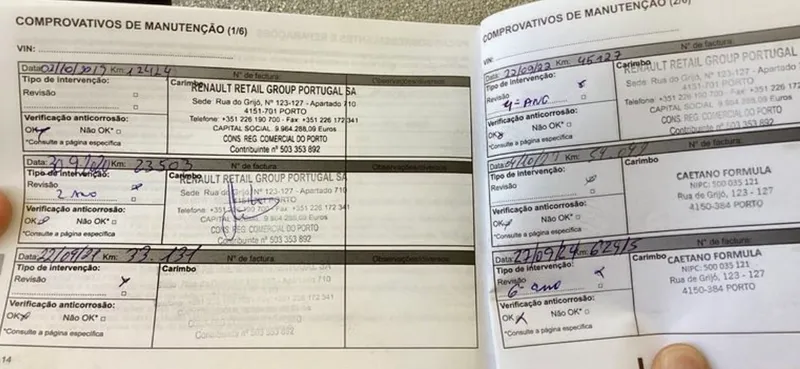 COMPROVATIVOS DE MANUTENÇÃO (1/6)
VIN:
Data: 02/10/2019 Km: 12414 N° de factura:
Tipo de intervenção: Carimbo Observações/diversos
Revisão
RENAULT RETAIL GROUP PORTUGAL SA
Sede: Rua do Grijó, Nº 123-127 - Apartado 710
4151-701 PORTO
Telefone: +351 226 190 700 - Fax +351 226 172 341
CAPITAL SOCIAL 9.964.288,09 Euros
CONS. REG. COMERCIAL DO PORTO
Contribuinte nº 503 353 892
Verificação anticorrosão:
OK Não OK*
*Consulte a página específica
Data: Km: 23503 N° de factura:
Tipo de intervenção: Carimbo Observações/diversos
Revisão
2 ano
RENAULT RETAIL GROUP PORTUGAL SA
Sede: Rua do Grijó, Nº 123-127 - Apartado 710
PORTO
Telefone: +351 226 190 700 - Fax +351 226 172 341
CAPITAL SOCIAL 9.964.288,09 Euros
CONS. REG. COMERCIAL DO PORTO
Contribuinte nº 503 353 892
Verificação anticorrosão:
OK Não OK*
*Consulte a página específica
Data: 22/09/21 Km: 33.131 N° de factura:
Tipo de intervenção: Carimbo Observações/diversos
Revisão
Verificação anticorrosão:
OK Não OK*
*Consulte a página específica
14
COMPROVATIVOS DE MANUTENÇÃO (2/6)
VIN:
Data: 22/09/22 Km: 45127 N° de factura:
Tipo de intervenção: Carimbo
Revisão
4º ANO
RENAULT RETAIL GROUP PORTUGAL
Sede: Rua do Grijó, Nº 123-127 - Apartado
4151-701 PORTO
Telefone: +351 226 190 700 - Fax +351 226 17
CAPITAL SOCIAL 9.964.288,09 Euros
CONS. REG. COMERCIAL DO PORTO
Contribuinte nº 503 353 892
Verificação anticorrosão:
OK Não OK*
*Consulte a página específica
Data: Km: N° de factura:
Tipo de intervenção: Carimbo
Revisão
CAETANO FORMULA
NIPC: 500 035 121
Rua de Grijó, 123 - 127
4150-384 PORTO
Verificação anticorrosão:
OK Não OK*
*Consulte a página específica
Data: 27/09/24 Km: N° de factura:
Tipo de intervenção: Carimbo
Revisão
6º ano
CAETANO FORMULA
NIPC: 500 035 121
Rua de Grijó, 123 - 127
4150-384 PORTO
Verificação anticorrosão:
OK Não OK*
*Consulte a página específica